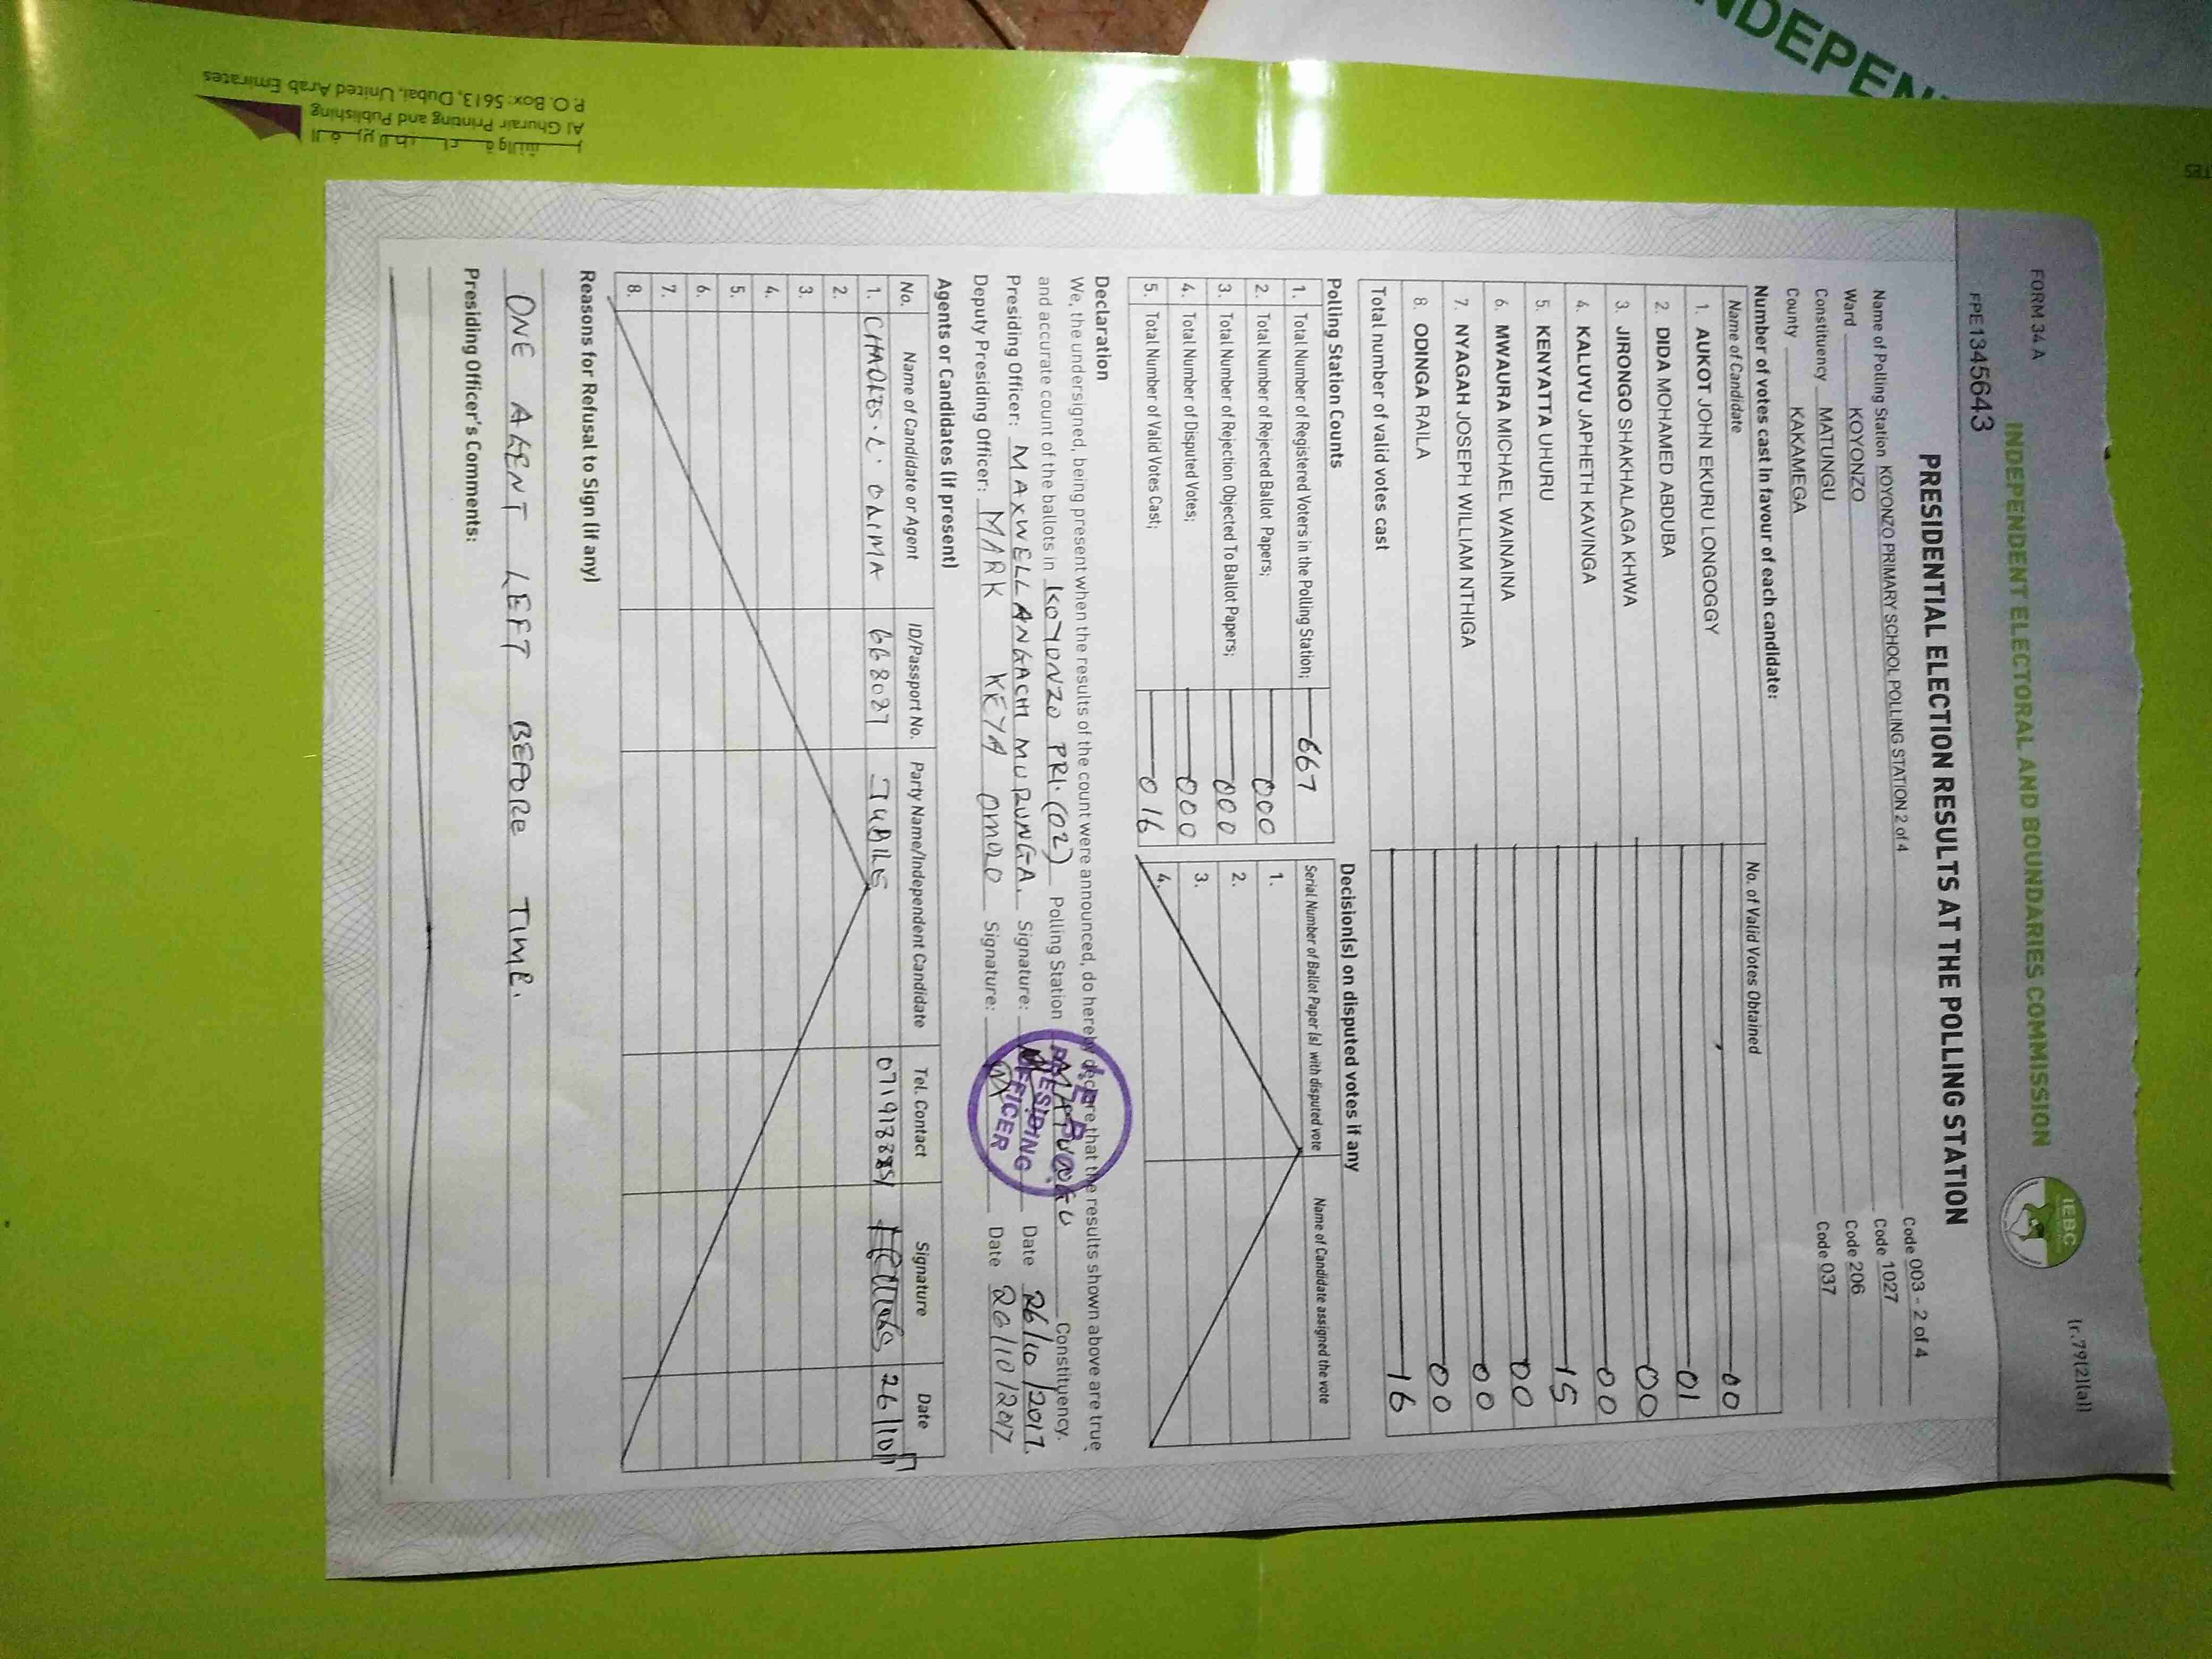 INDEPEN
TES
Al Ghurair Printing and Publishing
P. O. Box: 5613, Dubai, United Arab Emirates
FORM 34 A
(r.79(2)(a))
INDEPENDENT ELECTORAL AND BOUNDARIES COMMISSION
IEBC
FPE1345643
PRESIDENTIAL ELECTION RESULTS AT THE POLLING STATION
Name of Polling Station KOYONZO PRIMARY SCHOOL POLLING STATION 2 of 4 Code 003 - 2 of 4
Ward KOYONZO Code 1027
Constituency MATUNGU Code 206
County KAKAMEGA Code 037
Number of votes cast in favour of each candidate:
Name of Candidate No. of Valid Votes Obtained
1. AUKOT JOHN EKURU LONGOGGY 00
2. DIDA MOHAMED ABDUBA 01
3. JIRONGO SHAKHALAGA KHWA 00
4. KALUYU JAPHETH KAVINGA 00
5. KENYATTA UHURU 15
6. MWAURA MICHAEL WAINAINA 00
7. NYAGAH JOSEPH WILLIAM NTHIGA 00
8. ODINGA RAILA 00
Total number of valid votes cast 16
Polling Station Counts
1. Total Number of Registered Voters in the Polling Station; 667
2. Total Number of Rejected Ballot Papers; 000
3. Total Number of Rejection Objected To Ballot Papers; 000
4. Total Number of Disputed Votes; 000
5. Total Number of Valid Votes Cast; 016
Decision(s) on disputed votes if any
Serial Number of Ballot Paper (s) with disputed vote Name of Candidate assigned the vote
1.
2.
3.
4.
Declaration
We, the undersigned, being present when the results of the count were announced, do hereby declare that the results shown above are true
and accurate count of the ballots in KOYONZO PRI. (02) Polling Station MATUNGU Constituency.
Presiding Officer: MAXWELL ANGACHI MURUNGA. Signature: Date 26/10/2017.
Deputy Presiding Officer: MARK KEYA OMOLO Signature: Date 26/10/2017
PRESIDING
OFFICER
Agents or Candidates (if present)
No. Name of Candidate or Agent ID/Passport No. Party Name/Independent Candidate Tel. Contact Signature Date
1. 6668027 26/10/17
2.
3.
4.
5.
6.
7.
8.
Reasons for Refusal to Sign (if any)
ONE AGENT LEFT BEFORE TIME.
Presiding Officer's Comments: